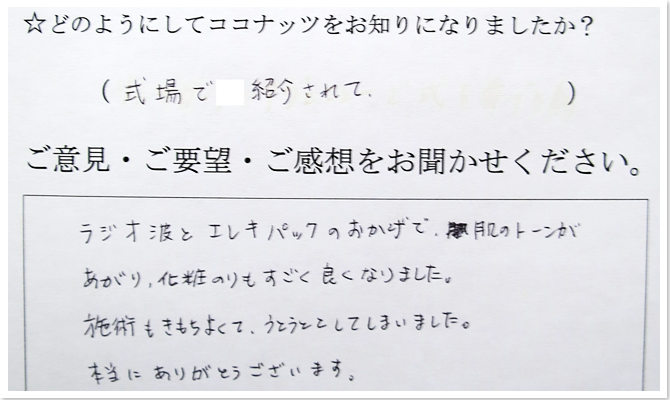 ☆どのようにしてココナッツをお知りになりましたか？
(式場で 紹介されて. )
ご意見・ご要望・ご感想をお聞かせください。
ラジオ波とエレキパックのおかげで、肌のトーンが
あがり、化粧のりもすごく良くなりました。
施術もきもちよくて、うとうとしてしまいました。
本当にありがとうございます。